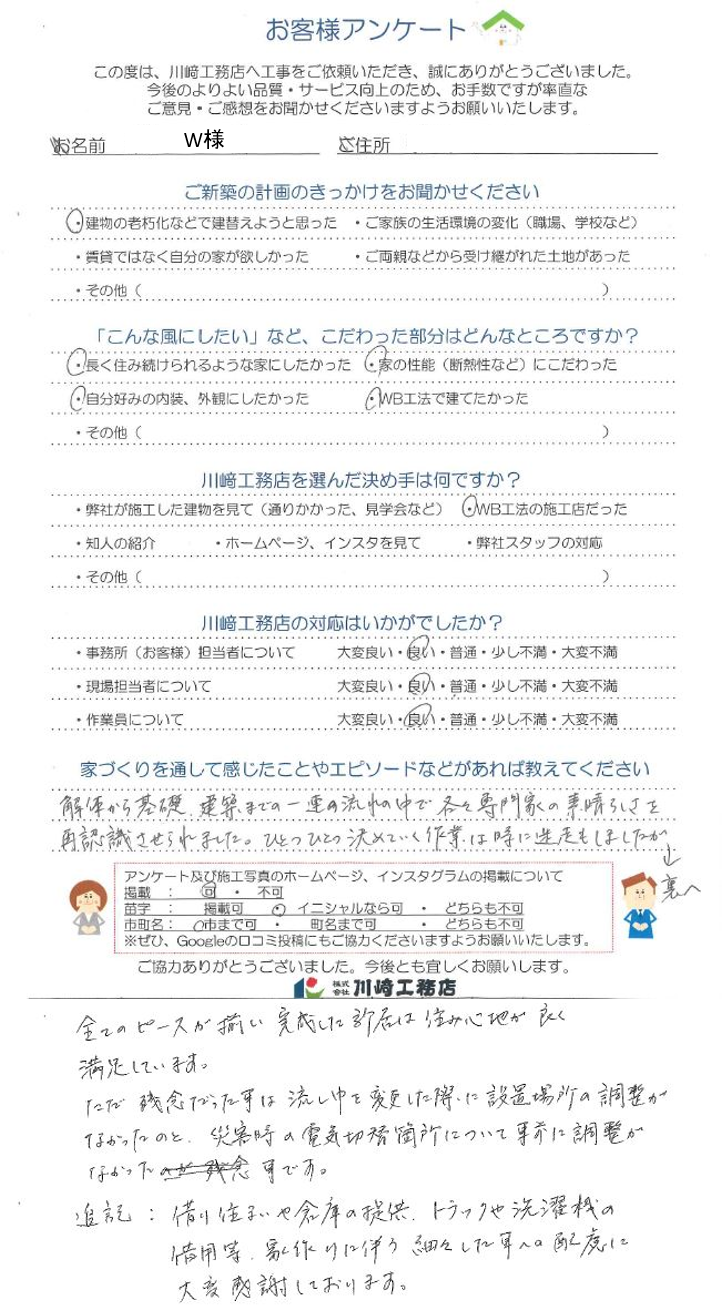 お客様アンケート
この度は、川﨑工務店へ工事をご依頼いただき、誠にありがとうございました。
今後のよりよい品質・サービス向上のため、お手数ですが率直な
ご意見・ご感想をお聞かせくださいますようお願いいたします。
お名前 W様 ご住所
ご新築の計画のきっかけをお聞かせください
・建物の老朽化などで建替えようと思った ・ご家族の生活環境の変化（職場、学校など）
・賃貸ではなく自分の家が欲しかった ・ご両親などから受け継がれた土地があった
・その他（ ）
「こんな風にしたい」など、こだわった部分はどんなところですか？
・長く住み続けられるような家にしたかった ・家の性能（断熱性など）にこだわった
・自分好みの内装、外観にしたかった ・WB工法で建てたかった
・その他（ ）
川﨑工務店を選んだ決め手は何ですか？
・弊社が施工した建物を見て（通りかかった、見学会など） ・WB工法の施工店だった
・知人の紹介 ・ホームページ、インスタを見て ・弊社スタッフの対応
・その他（ ）
川﨑工務店の対応はいかがでしたか？
・事務所（お客様）担当者について 大変良い・良い・普通・少し不満・大変不満
・現場担当者について 大変良い・良い・普通・少し不満・大変不満
・作業員について 大変良い・良い・普通・少し不満・大変不満
家づくりを通して感じたことやエピソードなどがあれば教えてください
解体から基礎、建築までの一連の流れの中で各々専門家の素晴らしさを
再認識させられました。ひとつひとつ決めていく作業は時に迷走もしましたが
↓
裏へ
アンケート及び施工写真のホームページ、インスタグラムの掲載について
掲載 ： 可 ・ 不可
苗字 ： 掲載可 ・ イニシャルなら可 ・ どちらも不可
市町名： 市まで可 ・ 町名まで可 ・ どちらも不可
※ぜひ、Googleの口コミ投稿にもご協力くださいますようお願いいたします。
ご協力ありがとうございました。今後とも宜しくお願いします。
株式会社 川﨑工務店
全てのピースが揃い完成した新居は住み心地が良く
満足しています。
ただ残念だった事は流し中を変更した際に設置場所の調整が
なかったのと、災害時の電気切替箇所について事前に調整が
なかった事です。
追記：借り住まいや倉庫の提供、トラックや洗濯機の
借用等、家作りに伴う細々した事への配慮に
大変感謝しております。